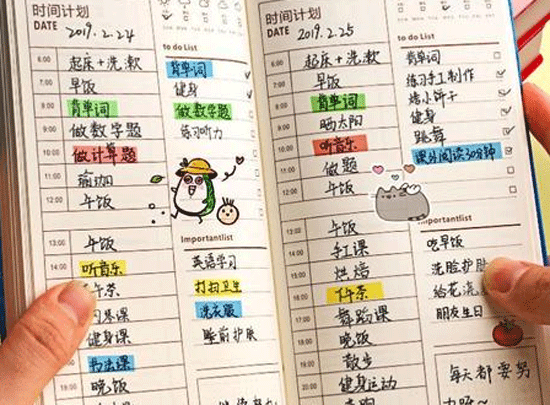 时间计划
DATE 2019.2.24
6:00 起床+洗漱
7:00 早饭
8:00 背单词
9:00 做数学题
10:00 做计算题
11:00 瑜珈
12:00 午饭
13:00 午饭
14:00 听音乐
午茶
健身课
书法课
19:00 晚饭
to do List
背单词
健身
做数学题
练习听力
Importantlist
英语学习
打扫卫生
洗衣服
睡前护肤
时间计划
DATE 2019.2.25
6:00 起床+洗漱
7:00 早饭
8:00 背单词
9:00 晒太阳
10:00 听音乐
11:00 做题
12:00 午饭
13:00 午饭
14:00 手工课
15:00 烘焙
16:00 下午茶
17:00 舞蹈课
18:00 晚饭
19:00 散步
20:00 健身运动
to do List
背单词
练习手工制作
烤小饼干
健身
跳舞
课外阅读30分钟
Importantlist
吃早饭
洗脸护肤
给花浇
朋友生日
每天都要努